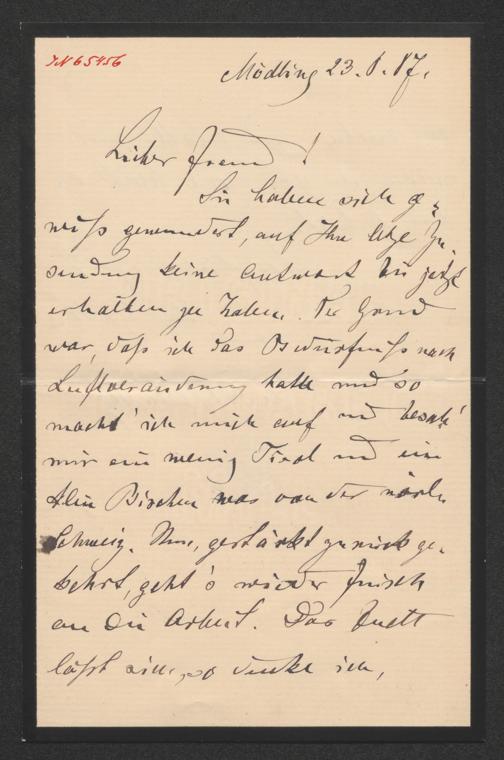 JN 65456
Mödling 23. 8. 87.
Lieber Freund!
Sie haben sich ge-
wiß gewundert, auf Ihre letzte Zu-
sendung keine Antwort bis jetzt
erhalten zu haben. Der Grund
war, daß ich das Bedürfniß nach
Luftveränderung hatte und so
macht' ich mich auf und besah'
mir ein wenig Tirol und ein
klein Bischen was von der
Schweiz. Nun, gestärkt zurückge-
kehrt, geht's wieder frisch
an die Arbeit. Das Duett
läßt sich, so denke ich,